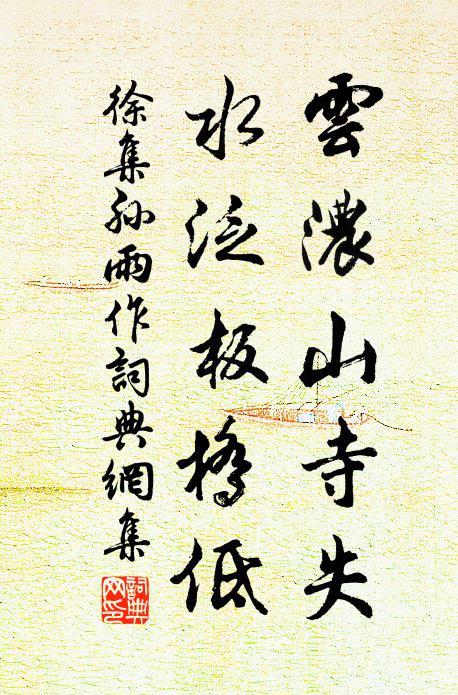 雲濃山寺失
水泛板橋低
徐集孙雨作詞典網集
詞典網印